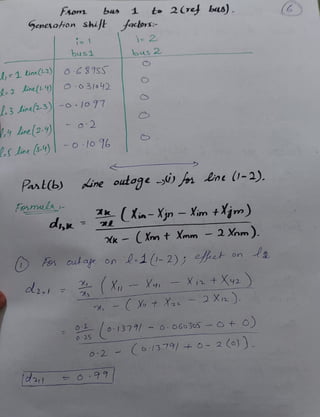 From bus 1 to 2 (ref bus). 6
Generation shift factors:-
i=1 i=2
bus1 bus 2
l=1 line(1.2) 0.68955 0
l=2 line(1.4) 0.031042 0
l.3 line(2.3) -0.1097 0
l.4 line(2.4) -0.2 0
l.5 line(3.4) -0.1096 0
Part(b) Line outage →(i) for line (1-2).
Formula:-
dl,k = xk/xl (Xin - Xjn - Xim + Xjm)
xk - (Xnn + Xmm - 2Xnm).
① For outage on l=1 (1-2); effect on l2
d2,1 = x1/x2 (X11 - X41 - X12 + X42)
x1 - (X11 + X22 - 2X12).
= 0.2/0.25 (0.13791 - 0.060305 - 0 + 0)
0.2 - (0.13791 + 0 - 2(0)).
d2,1 = 0.99